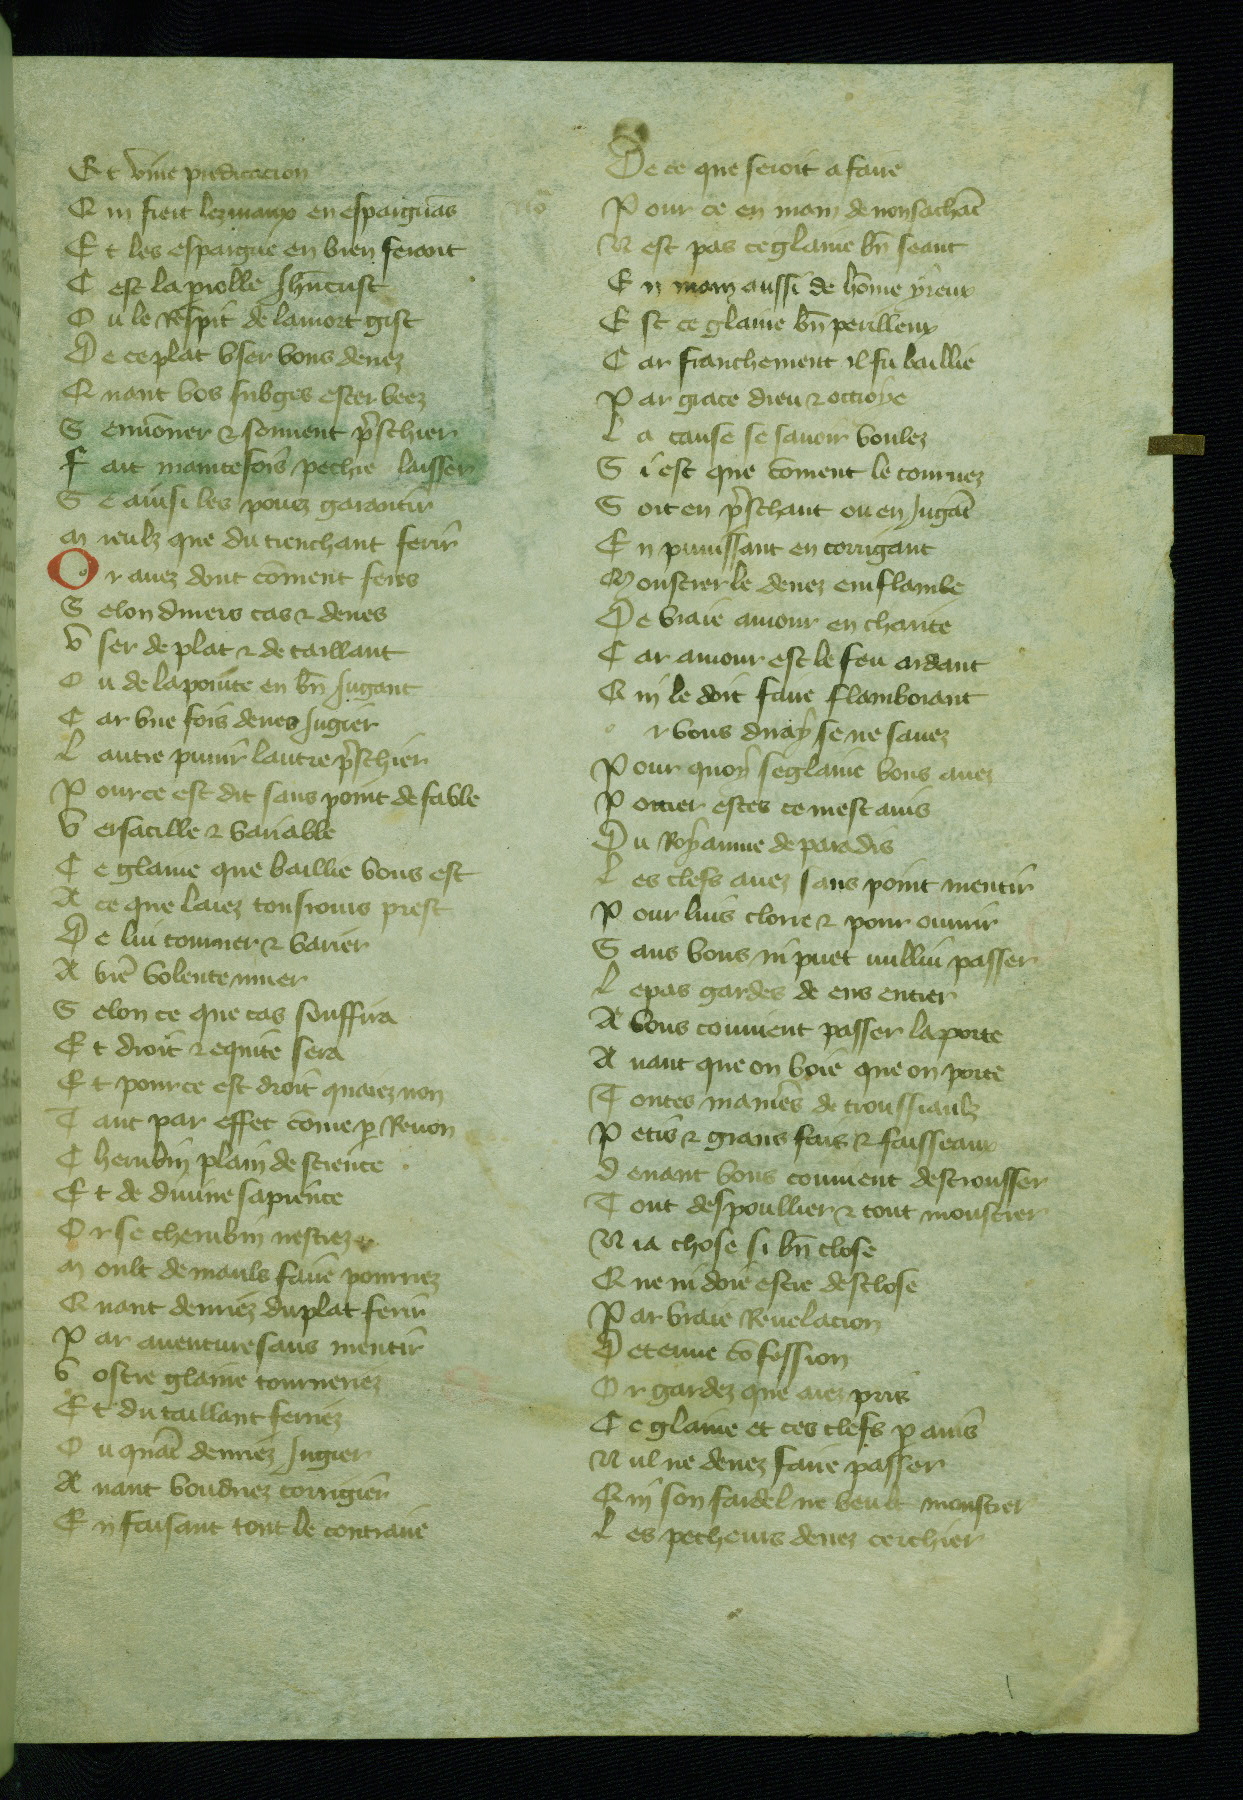 Et vraie predicacion
Qui fiert lez mauvais en espargnas
Et les espargne en bien ferant
C est la parolle Jhũcrist
Ou le respit de la mort gist
De ce plat user vous devez
Quant vos subges ester veez
Sermõner & souvent p̃schier
Fait maintefois pechie laisser
Se ainsi les pouez garantir
Mieulz que du trenchant ferir
Or avez dont cõment feres
Selon divers cas & deves
User de plat & de taillant
Ou de la pointe en bñ jugant
Car une fois deves jugier
L autre punir lautre p̃schier
Pour ce est dit sans point de fable
Versatille & variable
Ce glaive que baillie vous est
A ce que laiez tousjours prest
De lui tourner & varier
A vr̃e volente muer
Selon ce que cas souffira
Et droit & equite sera
Et pour ce est droit quaiez non
Tant par effet cõme p renon
Cherubin plain de science
Et de divine sapience
Or se cherubin nestiez
Moult de maulx faire pourriez
Quant devriez du plat ferir
Par aventure sans mentir
Vostre glaive tourneriez
Et du taillant ferriez
Ou quãt devriez jugier
Avant voudriez corrigier
En faisant tout le contraire
De ce que seroit a faire
Pour ce en main de non sachãt
N est pas ce glaive bñ seant
En main aussi de hõme yreux
Est ce glaive bñ perilleux
Car franchement il fu baillie
Par grace dieu & ottroye
La cause se savoir voulez
Si est que cõment le tournez
Soit en p̃schant ou en jugãt
En punissant en corrigant
Monstrer le devez enflambe
De vraie amour en charite
Car amour est le feu ardant
Qui le doit faire flamboiant
or vous diray se ne savez
Pour quoy se glaive vous avez
Portier estes ce mest avis
Du royaume de paradis
Les clefs avez sans point mentir
Pour luis clorre & pour ouvrir
Sans vous ni puet nullui passer
Le pas gardes de ens entrer
A vous couvient passer la porte
Avant que on voie que on porte
Toutes manieres de troussiaulz
Petis & grans fais & faisseaux
Devant vous couvient destrousser
Tout despoullier & tout monstrer
N ia chose si bñ close
Que ni doie estre desclose
Par vraie revelacion
De tenue cõfession
Or gardez que aiez pris
Ce glaive et ces clefs p avis
Nul ne devez faire passer
Qui son fardel ne veult monstrer
Les pecheurs devez cerchier